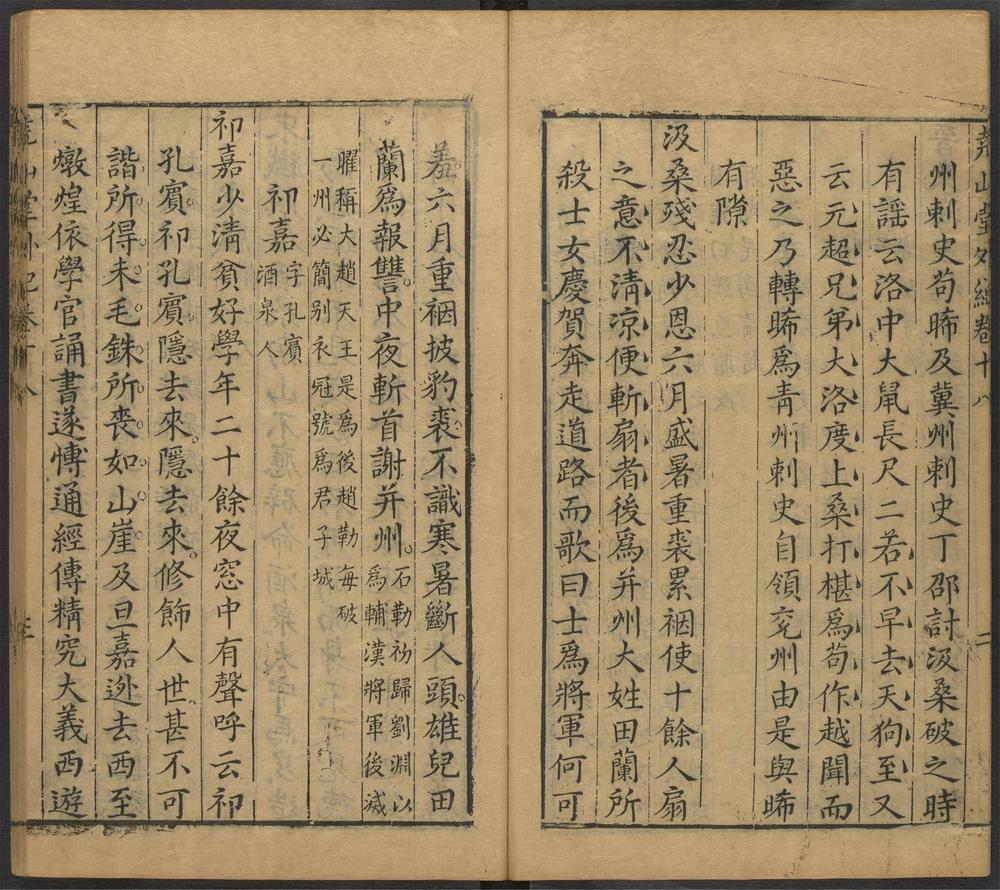 堯山堂外紀卷十八 二
州刺史苟晞及冀州刺史丁邵討汲桑破之時
有謡云洛中大鼠長尺二若不早去天狗至又
云元超兄弟大洛度上桑打椹爲苟作越聞而
惡之乃轉晞爲靑州刺史自領兖州由是與晞
有隙
汲桑殘忍少恩六月盛暑重裘累裀使十餘人扇
之意不淸凉便斬扇者後爲并州大姓田蘭所
殺士女慶賀奔走道路而歌曰士爲將軍何可
羞六月重裀披豹裘不識寒暑斷人頭雄兒田
蘭爲報讐中夜斬首謝并州石勒初歸劉淵以爲輔漢將軍後滅
曜稱大趙天王是爲後趙勒每破一州必簡别衣冠號爲君子城
祁嘉字孔賓酒泉人
祁嘉少淸貧好學年二十餘夜窓中有聲呼云祁
孔賓祁孔賓隱去來隱去來修飾人世甚不可
諧所得未毛銖所喪如山崖及旦嘉逊去西至
燉煌依學官誦書遂博通經傳精究大義西遊